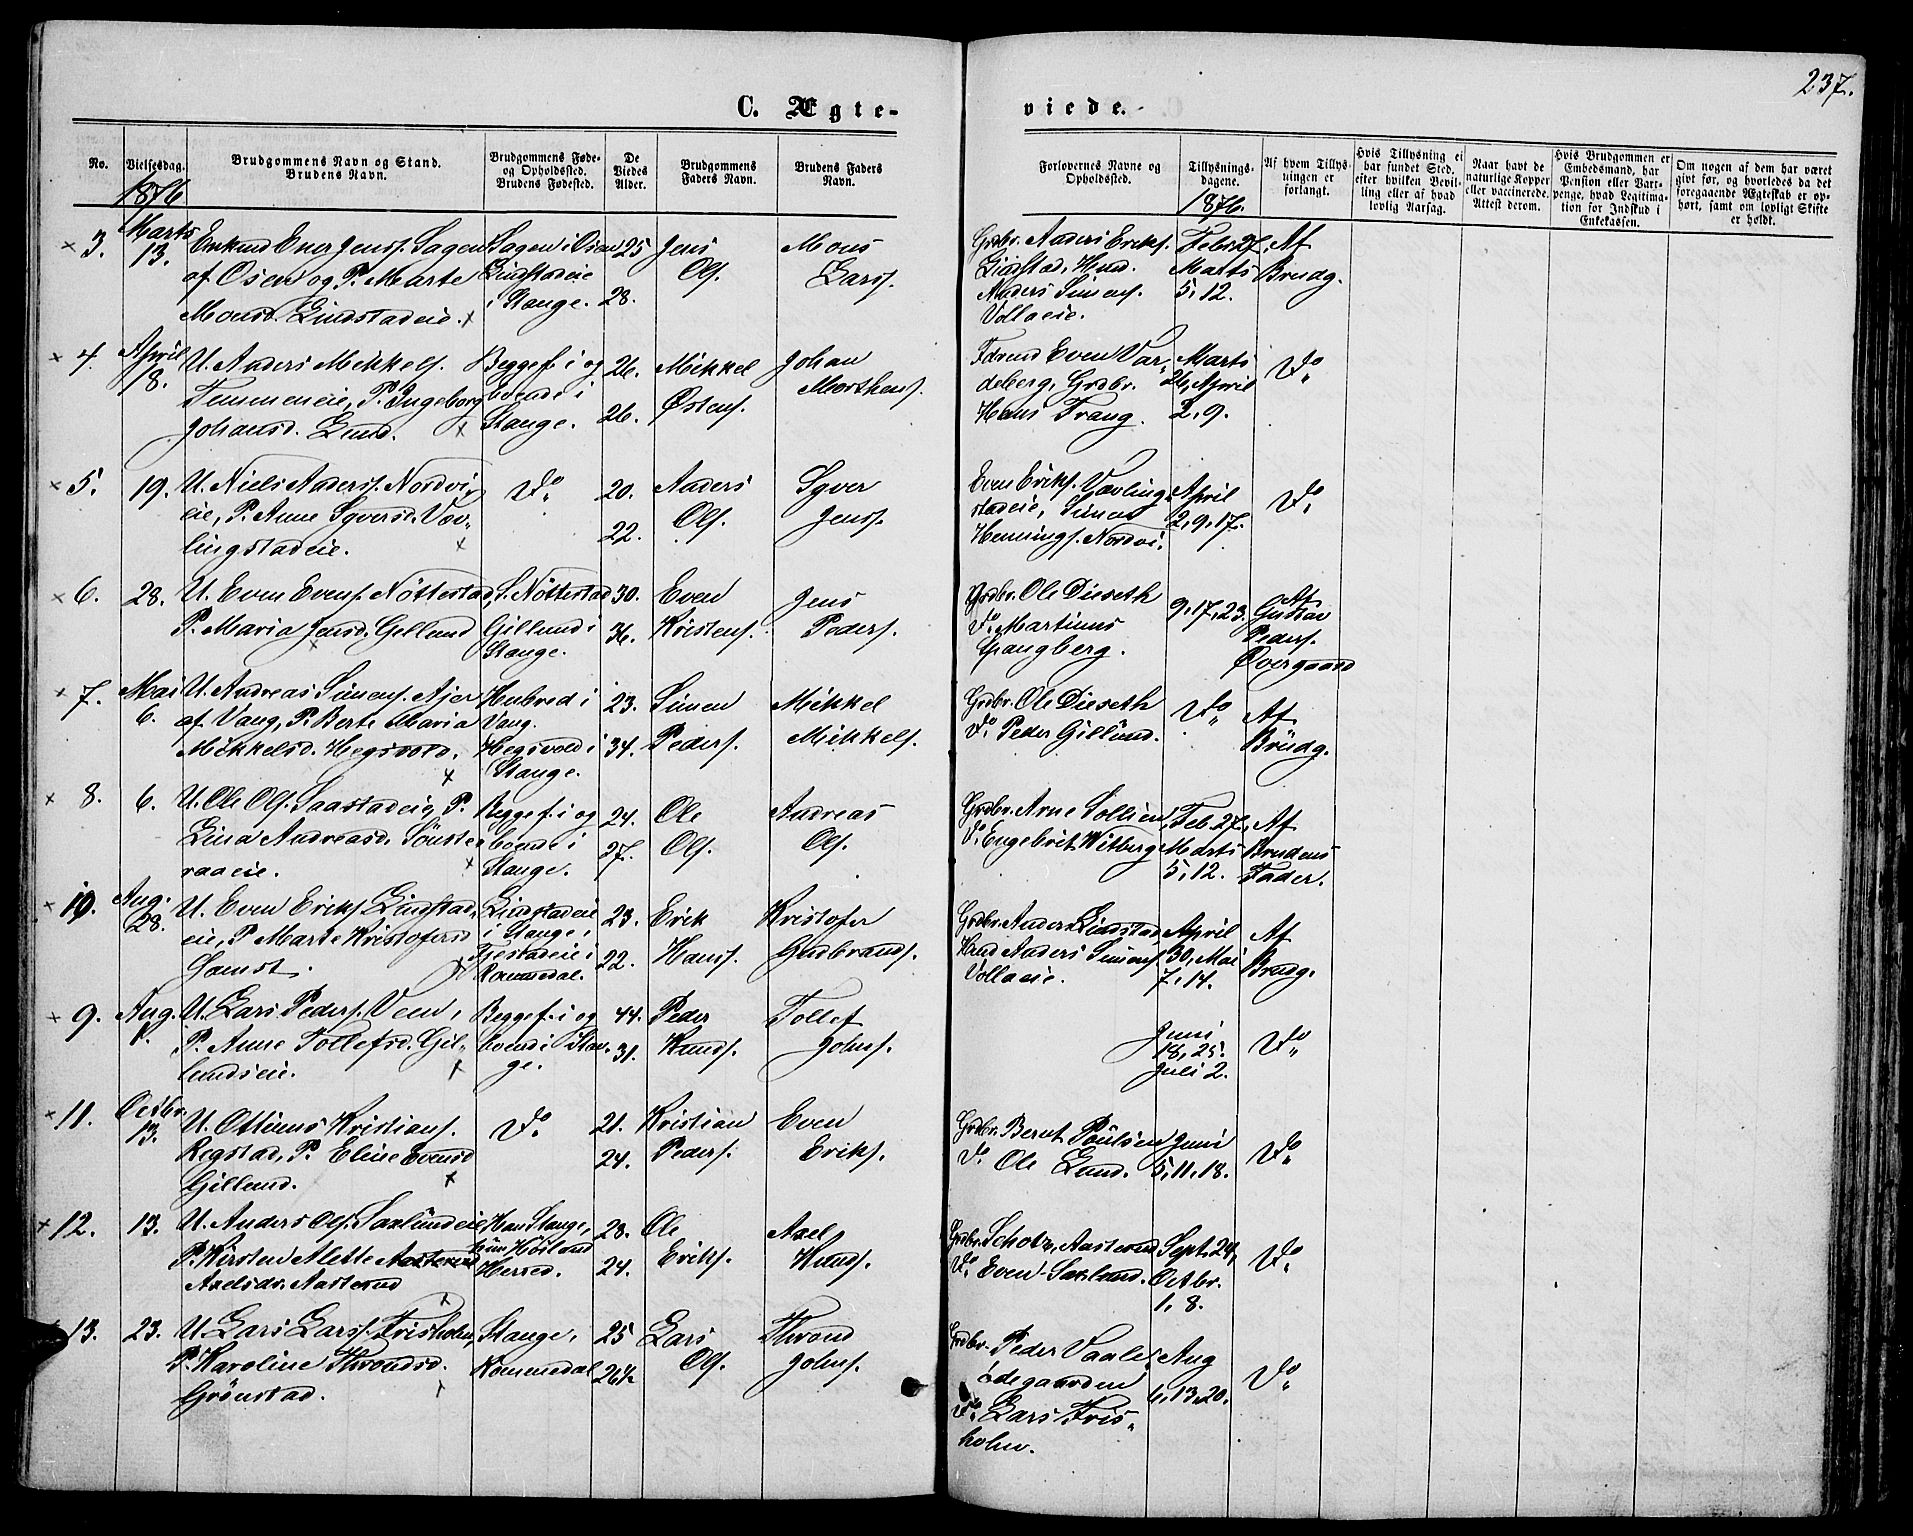 237.
C. Ægte-
viede.
No.
Vielsesdag.
Brudgommens Navn og Stand.
Brudens Navn.
Brudgommens Føde-
og Opholdssted.
Brudens Fødested.
De
Viedes
Alder.
Brudgommens
Faders Navn.
Brudens Faders
Navn.
Forlovernes Navne og
Opholdssted.
Tillysnings-
dagene.
Af hvem Tillys-
ningen er
forlangt.
Hvis Tillysning ei
har fundet Sted,
efter hvilken Bevil-
ling eller af hvad
lovlig Aarsag.
Naar havt de
naturlige Kopper
eller vaccinerede.
Attest derom.
Hvis Brudgommen er
Embedsmand, har
Pension eller Vart-
penge, hvad Legitima-
tion for Indskud i
Enkekassen.
Om nogen af dem har været
gift før, og hvorledes da det
foregaaende Ægteskab er op-
hørt, samt om lovligt Skifte
er holdt.
1876
1876.
× 3.
Marts
13.
Enkemd Ener Jenss. Sagen
af Osen og P. Marte
Monsd. Lindstadeie. ×
Sagen i Osen
Lindstadeie
i Stange.
25
28.
Jens
Ols.
Mons
Larss.
Grdbr. Anders Eriks.
Lindstad, Husd.
Anders Simens.
Vollaeie.
Febr. 27,
Marts
5, 12.
Af
Brudg.
× 4.
April
18.
U. Anders Mikkels.
Femmeneie, P. Ingeborg
Johansd. Lund. ×
Begge f. i og
boende i
Stange.
26.
26.
Mikkel
Østens.
Johan
Morthens.
Even Var-
deberg, Grdbr.
Hans Frang.
Marts
26, April
2, 9.
Do
× 5.
19.
U. Niels Anderss. Nordvi-
eie, P. Anne Syversd. Vov-
lingstadeie. ×
Do
20.
22.
Anders
Ols.
Syver
Jenss.
Even Eriks. Vavling-
stadeie, Simen
Hennings. Nordvi.
April
2, 9, 17.
Do
× 6.
28.
U. Even Evens. Nöttestad,
P. Maria Jensd. Gillund
×
S. Nöttestad
Gillund i
Stange.
30.
36.
Even
Kristens.
Jens
Peders.
Grdbr. Ole Dieseth
Do. Martinus
Spangberg.
9, 17, 23.
Af
Gustav
Peders.
Overgaard
× 7.
Mai
6.
U. Andreas Simens. Ajer
af Vang, P. Berte Maria
Mikkelsd. Hegsvold.
×
Hubred i
Vang.
Hegsvold i
Stange.
23.
34.
Simen
Peders.
Mikkel
Mikkels.
Grdbr. Ole Dieseth
Do. Peder Gillund.
Do
Af
Brudg.
× 8.
6.
U. Ole Ols. Saastadeie, P.
Lina Andreasd. Sönste-
raaeie. ×
Begge f. i og
boende i
Stange.
24.
27.
Ole
Ols.
Andreas
Ols.
Grdbr. Arne Sollien,
Do. Engebrit Witberg
Feb. 27,
Marts
5, 12.
Af
Brudens
Fader.
× 10.
Aug.
28.
U. Even Eriks. Lindstad-
eie, P. Marte Kristofersd
×
Lindstadeie
i Stange,
Tjestadeie i
Rommedal.
23.
22.
Erik
Hanss.
Kristofer
Gudbrands.
Grdbr. Anders Lindstad
Husd Anders Simens.
Vollaeie.
April
30, Mai
7, 14.
Af
Brudg.
× 9.
Aug.
U. Lars Peders. Veen,
P. Anne Tollefsd. Gil-
lundseie. ×
Begge f. i og
boende i Stan-
ge.
44.
31.
Peder
Knuds.
Tollef
Johns.
Juni
18, 25.
Juli 2.
Do
× 11.
Octbr.
13.
U. Ottinus Kristians.
Rogstad, P. Eline Evensd
Gillund. ×
Do
21.
24.
Kristian
Peders.
Even
Eriks.
Grdbr. Bernt Poulsen
Do. Ole Lund.
Juni
5, 11, 18.
Do
× 12.
13.
U. Anders Ols. Saxlundeie
P. Kirsten Alette
Axelsdr. Aasterud
×
Han Stange,
hun Höiland
Herred.
28.
24.
Ole
Eriks.
Axel
Knuds.
Grdbr. Scholz, Aasterud
Do. Even Saxlund.
Sept. 24,
Octbr.
1, 8.
Do
13.
23.
U. Lars Larss. Frisholm,
P. Karoline Throndsd.
Grönstad. ×
Stange,
Rommedal
25
26½
Lars
Ols.
Thrond
Johns.
Grdbr. Peder Vaale-
Ödegaarden
Do. Lars Fris-
holm.
Aug
6, 13, 20.
Do